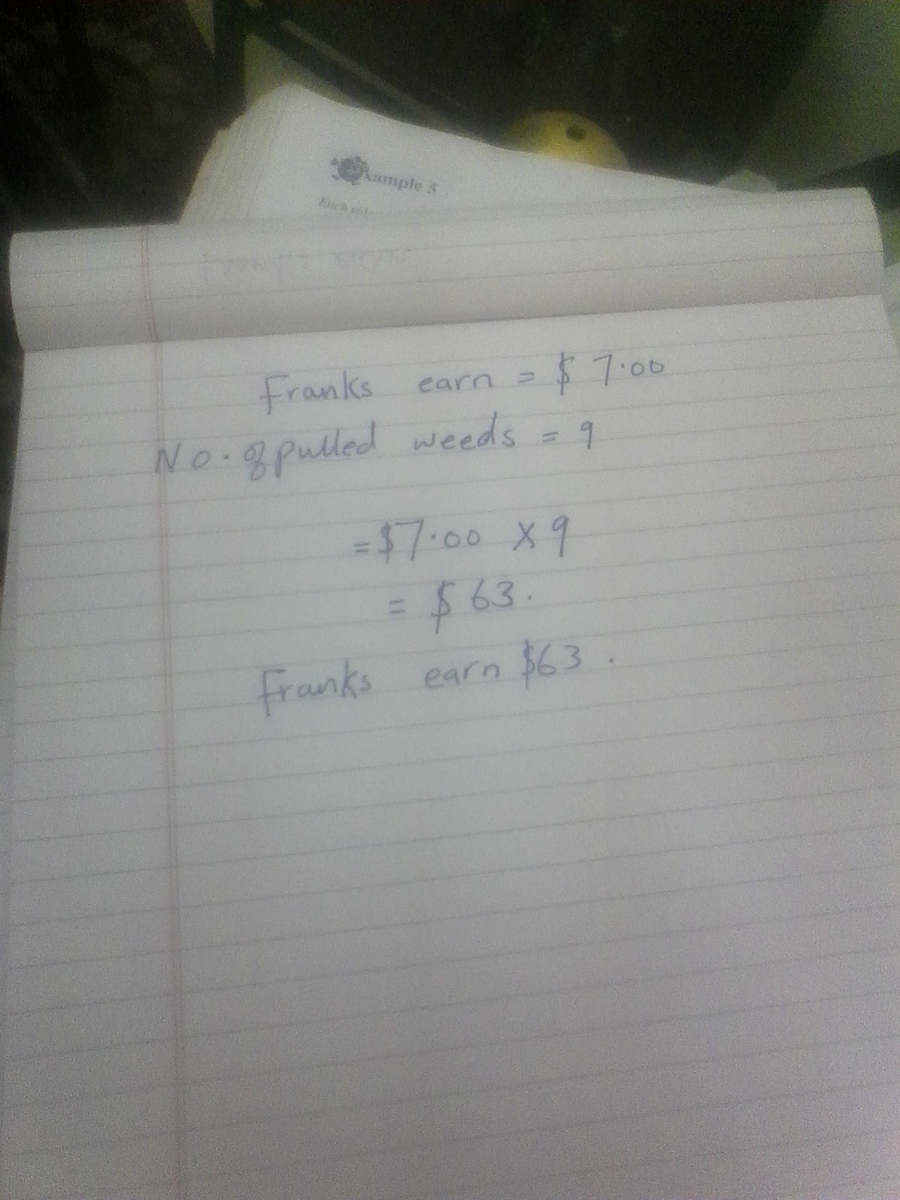 Example 5
Franks earn = $ 7.00
No. of pulled weeds = 9
= $7.00 x 9
= $ 63.
Franks earn $63.